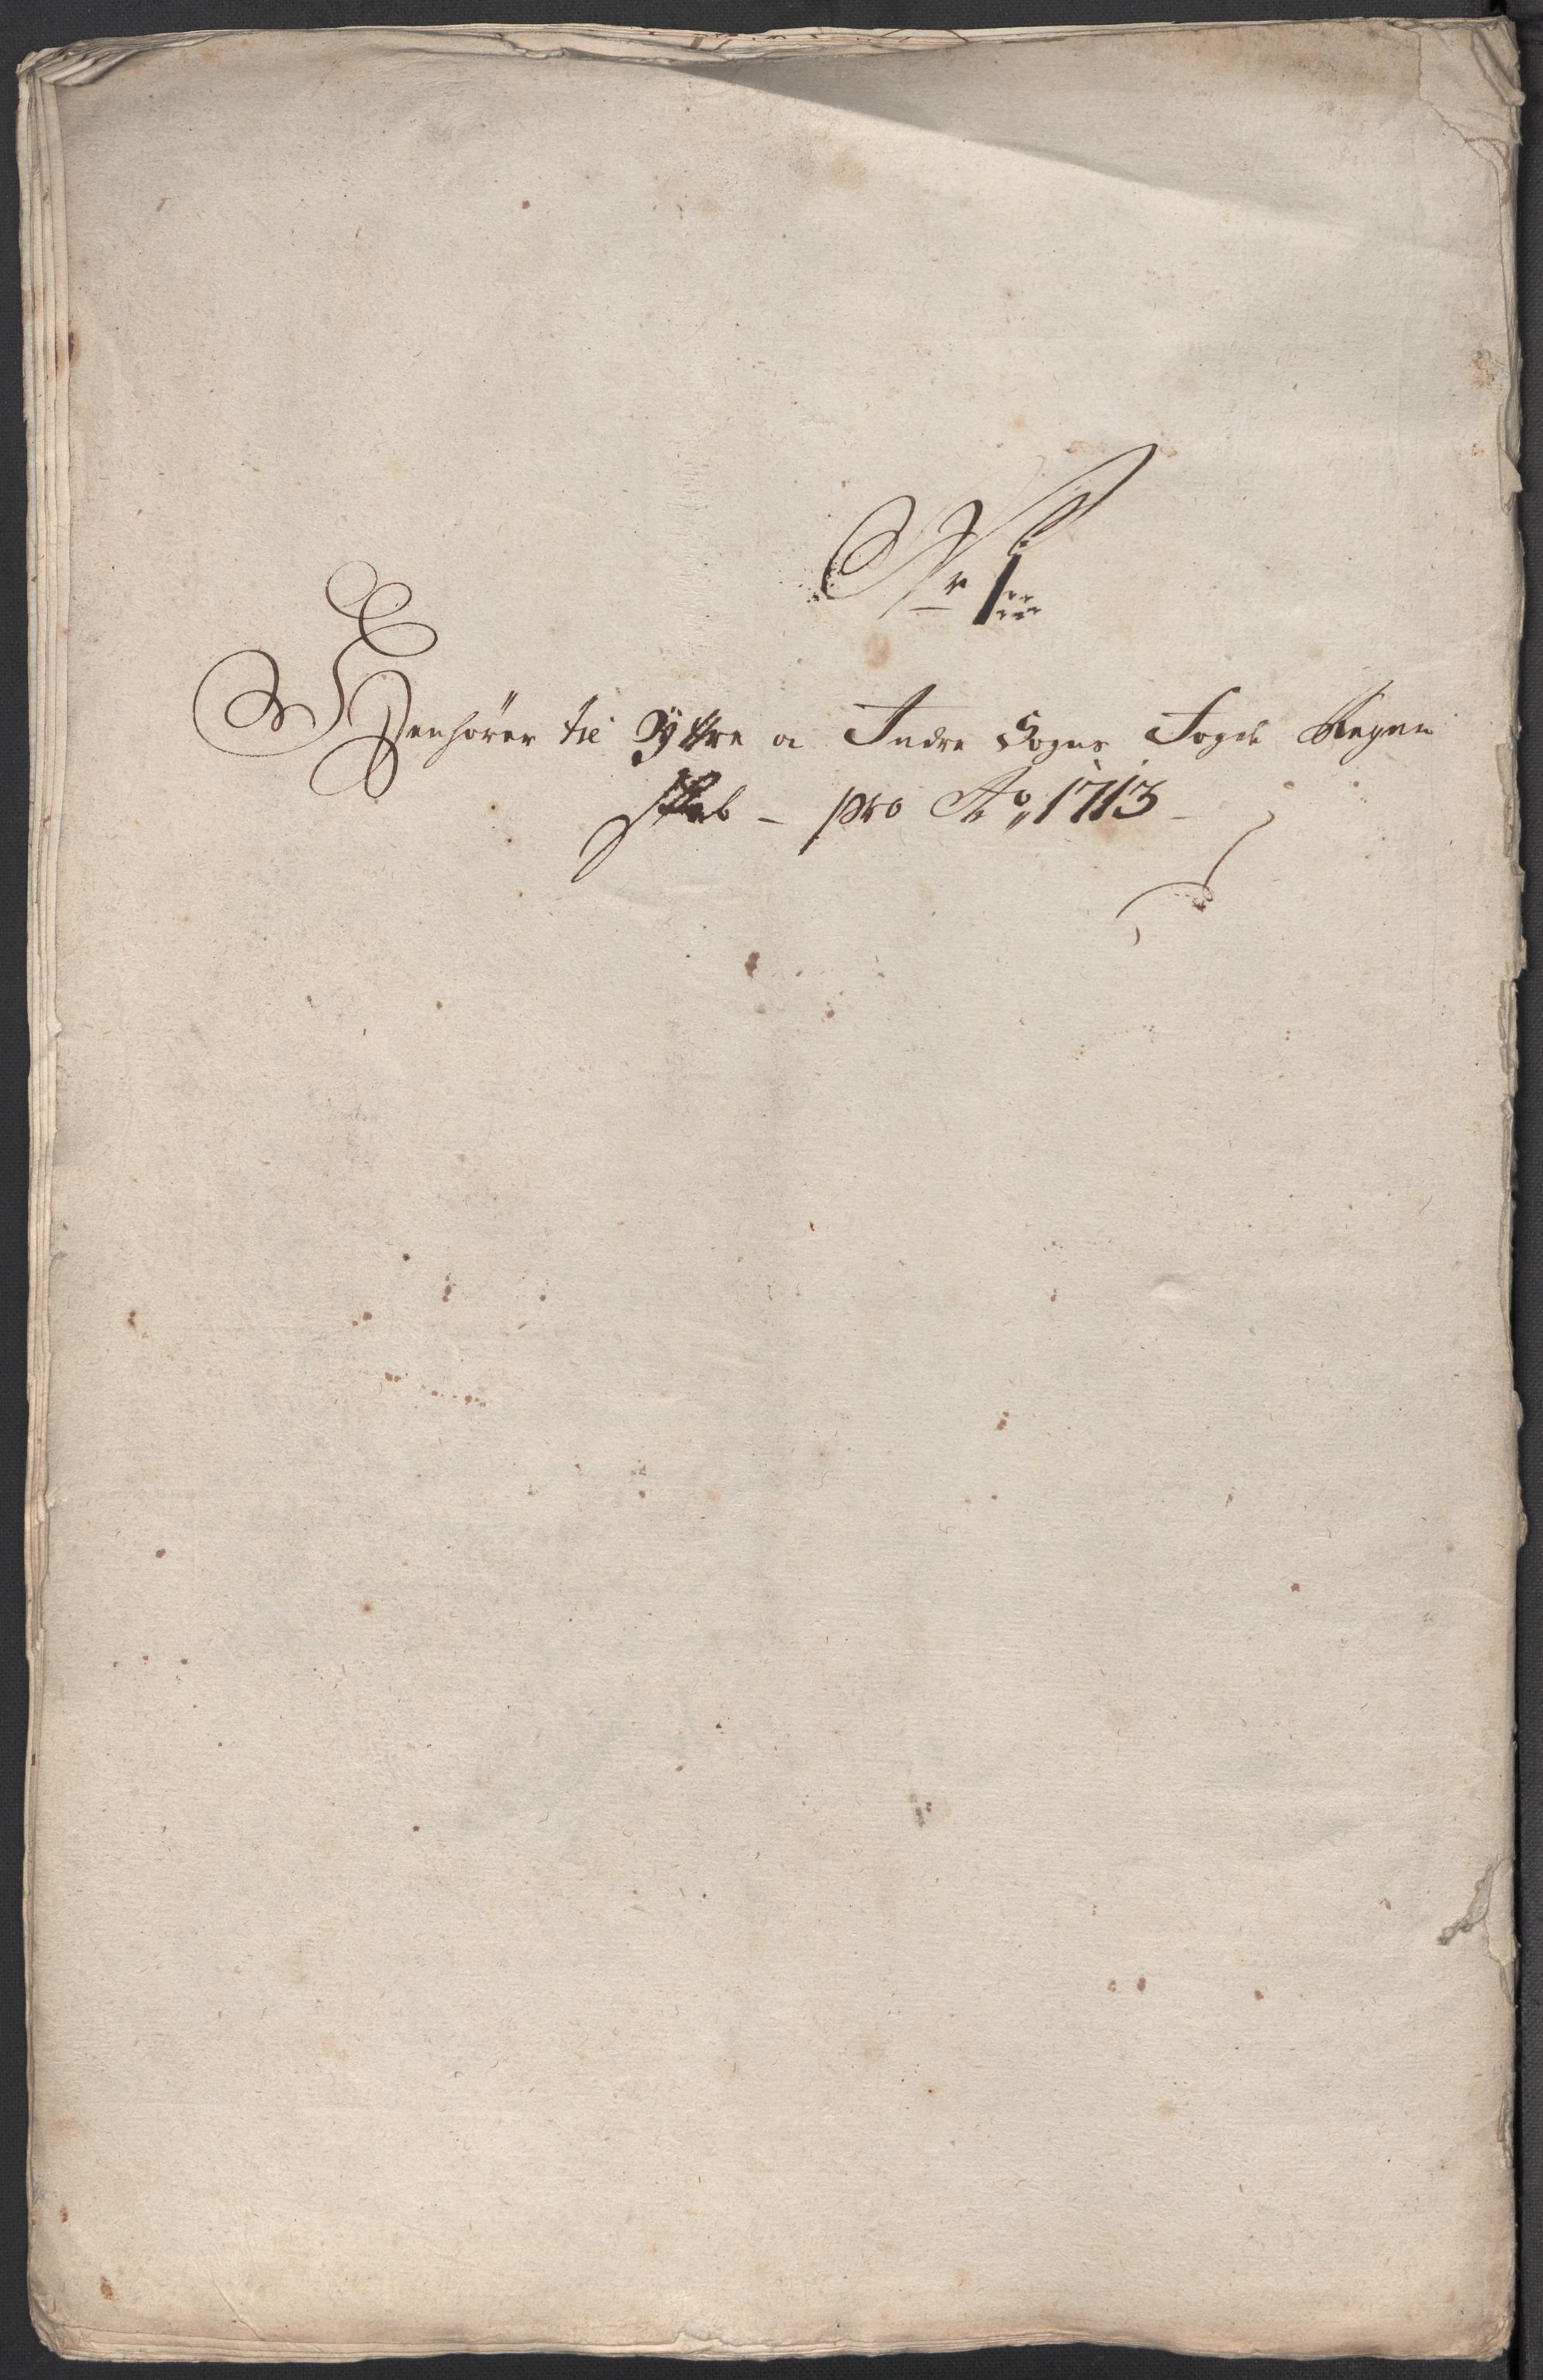 Nr 1
Henhörer til Ÿttre oc Indre Sogns Fogde Regen
skab - pro Ao, 1713